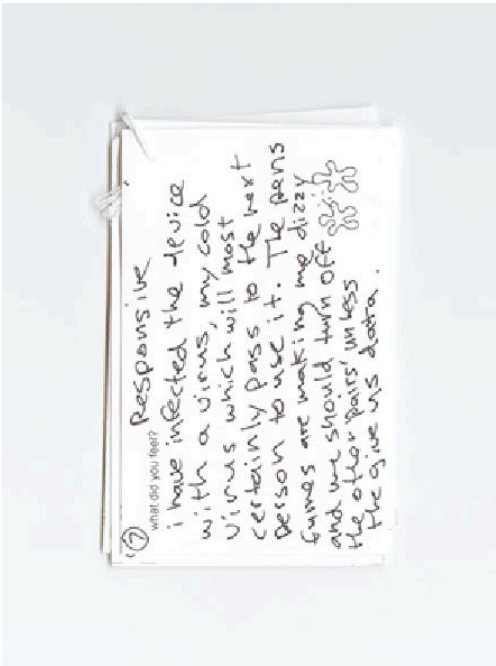 7
what did you feel? Responsive
i have infected the device
with a virus, my cold
virus which will most
certainly pass to the next
person to use it. The pens
fumes are making me dizzy
and we should turn off
the other 'pairs' unless
the give us data.